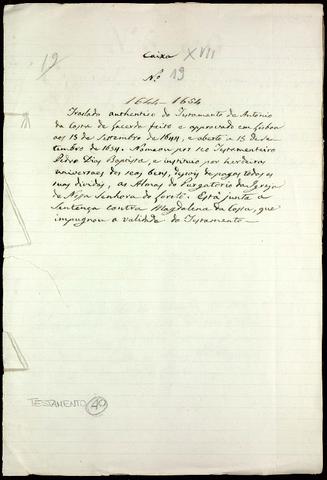 19
Caixa XVII
Nº 19
1644-1654
Traslado authentico do Testamento de Antonio
da Costa de Lacerda feito e approvado em Lisboa
aos 13 de Settembro de 1644, e aberto a 15 de Se-
tembro de 1654. Nomeou por seo Testamenteiro
Pedro Dias Baptista, e instituio por herdeiras
universaes dos seos bens, depois de pagas todas as
suas dividas, as Almas do Purgatorio da Igreja
de Nossa Senhora do Loreto. Está junta a
Sentença contra Magdalena da Costa, que
impugnou a validade do Testamento-
TESTAMENTO 40